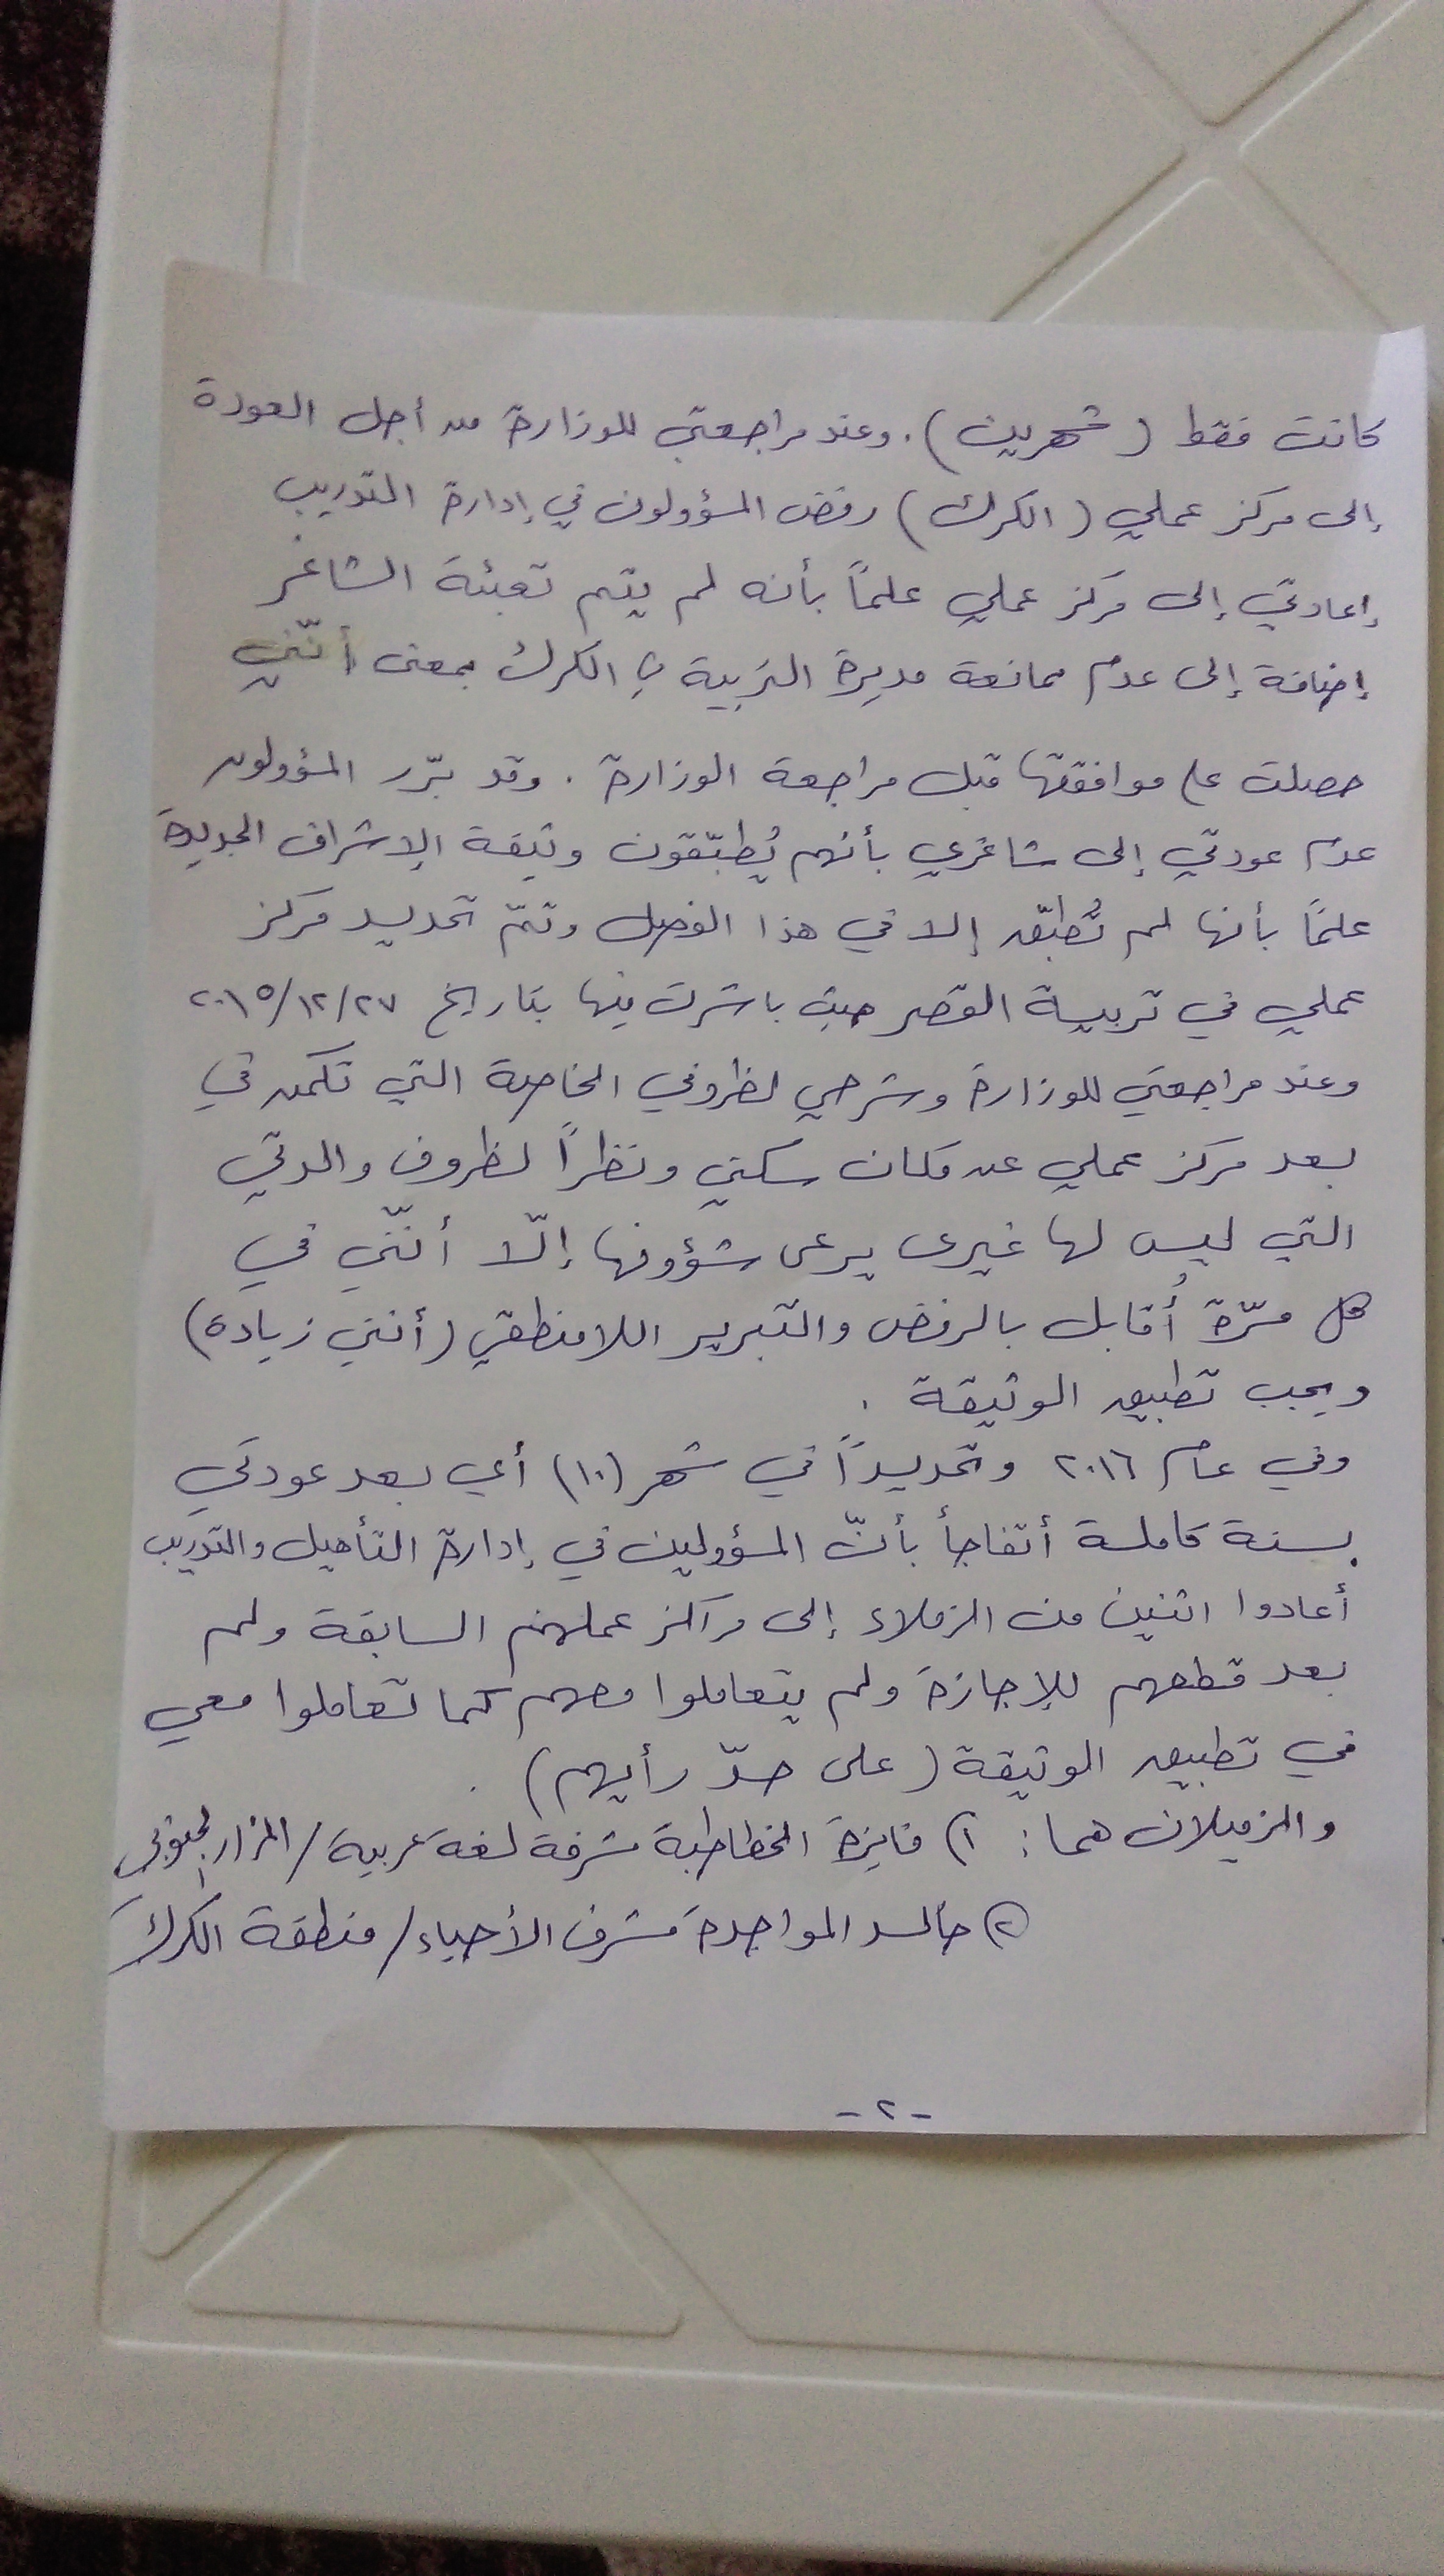 كانت فقط (شهرين). وعند مراجعتي للوزارة من أجل العودة
إلى مركز عملي (الكرك) رفض المسؤولون في إدارة التدريب
إعادتي إلى مركز عملي علماً بأنه لم يتم تعبئة الشاغر
إضافة إلى عدم ممانعة مديرة التربية في الكرك بمعنى أنّني
حصلت على موافقتها قبل مراجعة الوزارة. وقد برّر المسؤولون
عدم عودتي إلى شاغري بأنهم يُطبّقون وثيقة الإشراف الجديدة
علماً بأنها لم تُطبّق إلا في هذا الفصل وتمّ تحديد مركز
عملي في تربية القصر حيث باشرت فيها بتاريخ ٢٠١٥/١٢/٢٧
وعند مراجعتي للوزارة وشرحي لظروفي الخاصة التي تكمن في
بعد مركز عملي عن مكان سكني ونظراً لظروف والدتي
التي ليس لها غيري يرعى شؤونها إلّا أنّني في
كل مرّة أُقابل بالرفض والتبرير اللامنطقي (أنني زيادة)
ويجب تطبيق الوثيقة.
وفي عام ٢٠١٦ وتحديداً في شهر (١٠) أي بعد عودتي
بسنة كاملة أتفاجأ بأنّ المسؤولين في إدارة التأهيل والتدريب
أعادوا اثنين من الزملاء إلى مراكز عملهم السابقة ولم
بعد قطعهم للإجازة ولم يتعاملوا معهم كما تعاملوا معي
في تطبيق الوثيقة (على حدّ رأيهم).
والزميلان هما: ١) فايزة الخطاطبة مشرفة لغة عربية/المزار الجنوبي
٢) خالد المواجدة مشرف الأحياء/منطقة الكرك
-٢-